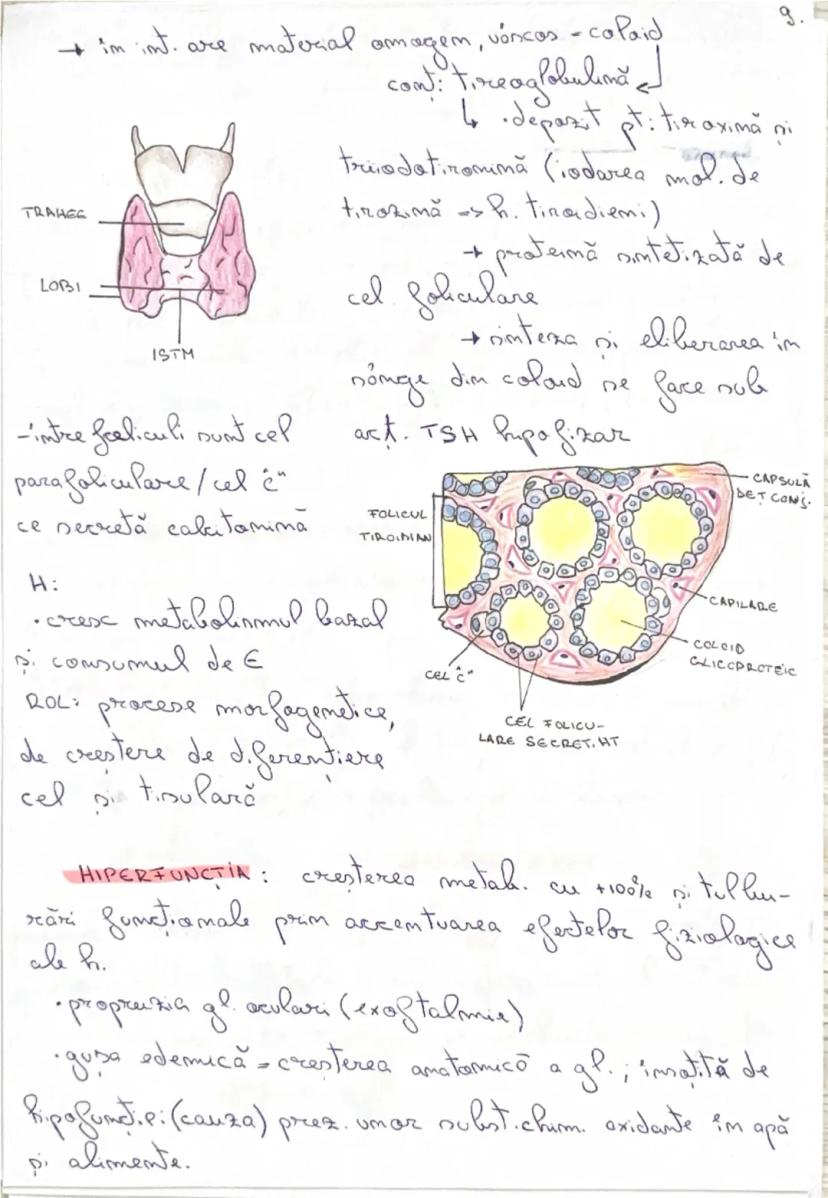 9.
→ în int. are material omogen, vâscos = coloid
conț: tireoglobulină ↵
↳ • depozit pt: tiroxină și
triiodotironină (iodarea mol. de
tirozină => h. tiroidieni)
→ proteină sintetizată de
cel. foliculare
→ sinteza și eliberarea în
sânge din coloid se face sub
acț. TSH hipofizar
TRAHEE
LOBI
ISTM
- între foliculi sunt cel
parafoliculare / cel "c"
ce secretă calcitonină
H:
• cresc metabolismul bazal
și consumul de E
ROL: procese morfogenetice,
de creștere de diferențiere
cel și tisulară
FOLICUL
TIROIDIAN
CAPSULĂ
DE Ț CONJ.
CAPILARE
COLOID
GLICOPROTEIC
CEL "C"
CEL FOLICU-
LARE SECRET. HT
HIPERFUNCȚIA: creșterea metab. cu +100% și tulbu-
rări funcționale prin accentuarea efectelor fiziologice
ale h.
• propruzia gl. oculari (exoftalmie)
• gușa edemică = creșterea anatomică a gl., însoțită de
hipofuncție: (cauza) prez. unor subst. chim. oxidante în apă
și alimente.